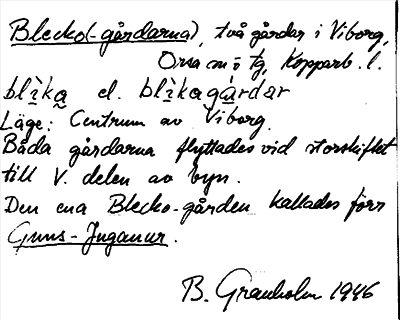 Blecko(-gårdarna), två gårdar i Viborg,
Orsa sn o tg, Kopparb. l.
blìka̰ el. blìkagárdar
Läge: Centrum av Viborg.
Båda gårdarna flyttades vid storskiftet
till V. delen av byn.
Den ena Blecko-gården kallades förr
Guns-Juganur.
B. Granholm 1946